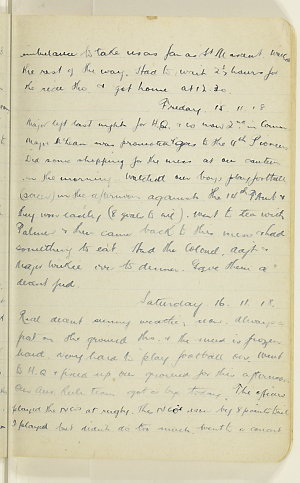 ambulance to take us as far as St
the rest of the way. Had to wait 2½ hours for
the rece tho. & got home at 12.30.
Friday. 15. 11. 18
Major left last night for H.Q. & so now 2nd in Com
Major was to the 4th Pioneers
Did some shopping for the mess at our canteen
in the morning. Watched our boys play football
(soccer) in the afternoon against the 14th &
they won easily (8 goals to nil). Went to tea with
Palmer & then came back to this mess & had
something to eat. Had the Colonel, adjt &
Major over to dinner. Gave them a
decent feed.
Saturday 16. 11. 18.
Real decent sunny weather, now. Always
frost on the ground tho. & the mud is frozen
hard. Very hard to play football on. Went
to H.Q. & fixed up our ground for this afternoon
Our Aus. Rules team got a bye today. The officers
played the NCOs at rugby. The NCOs won by 8 points to nil
I played but didn't do too much. Went to a concert